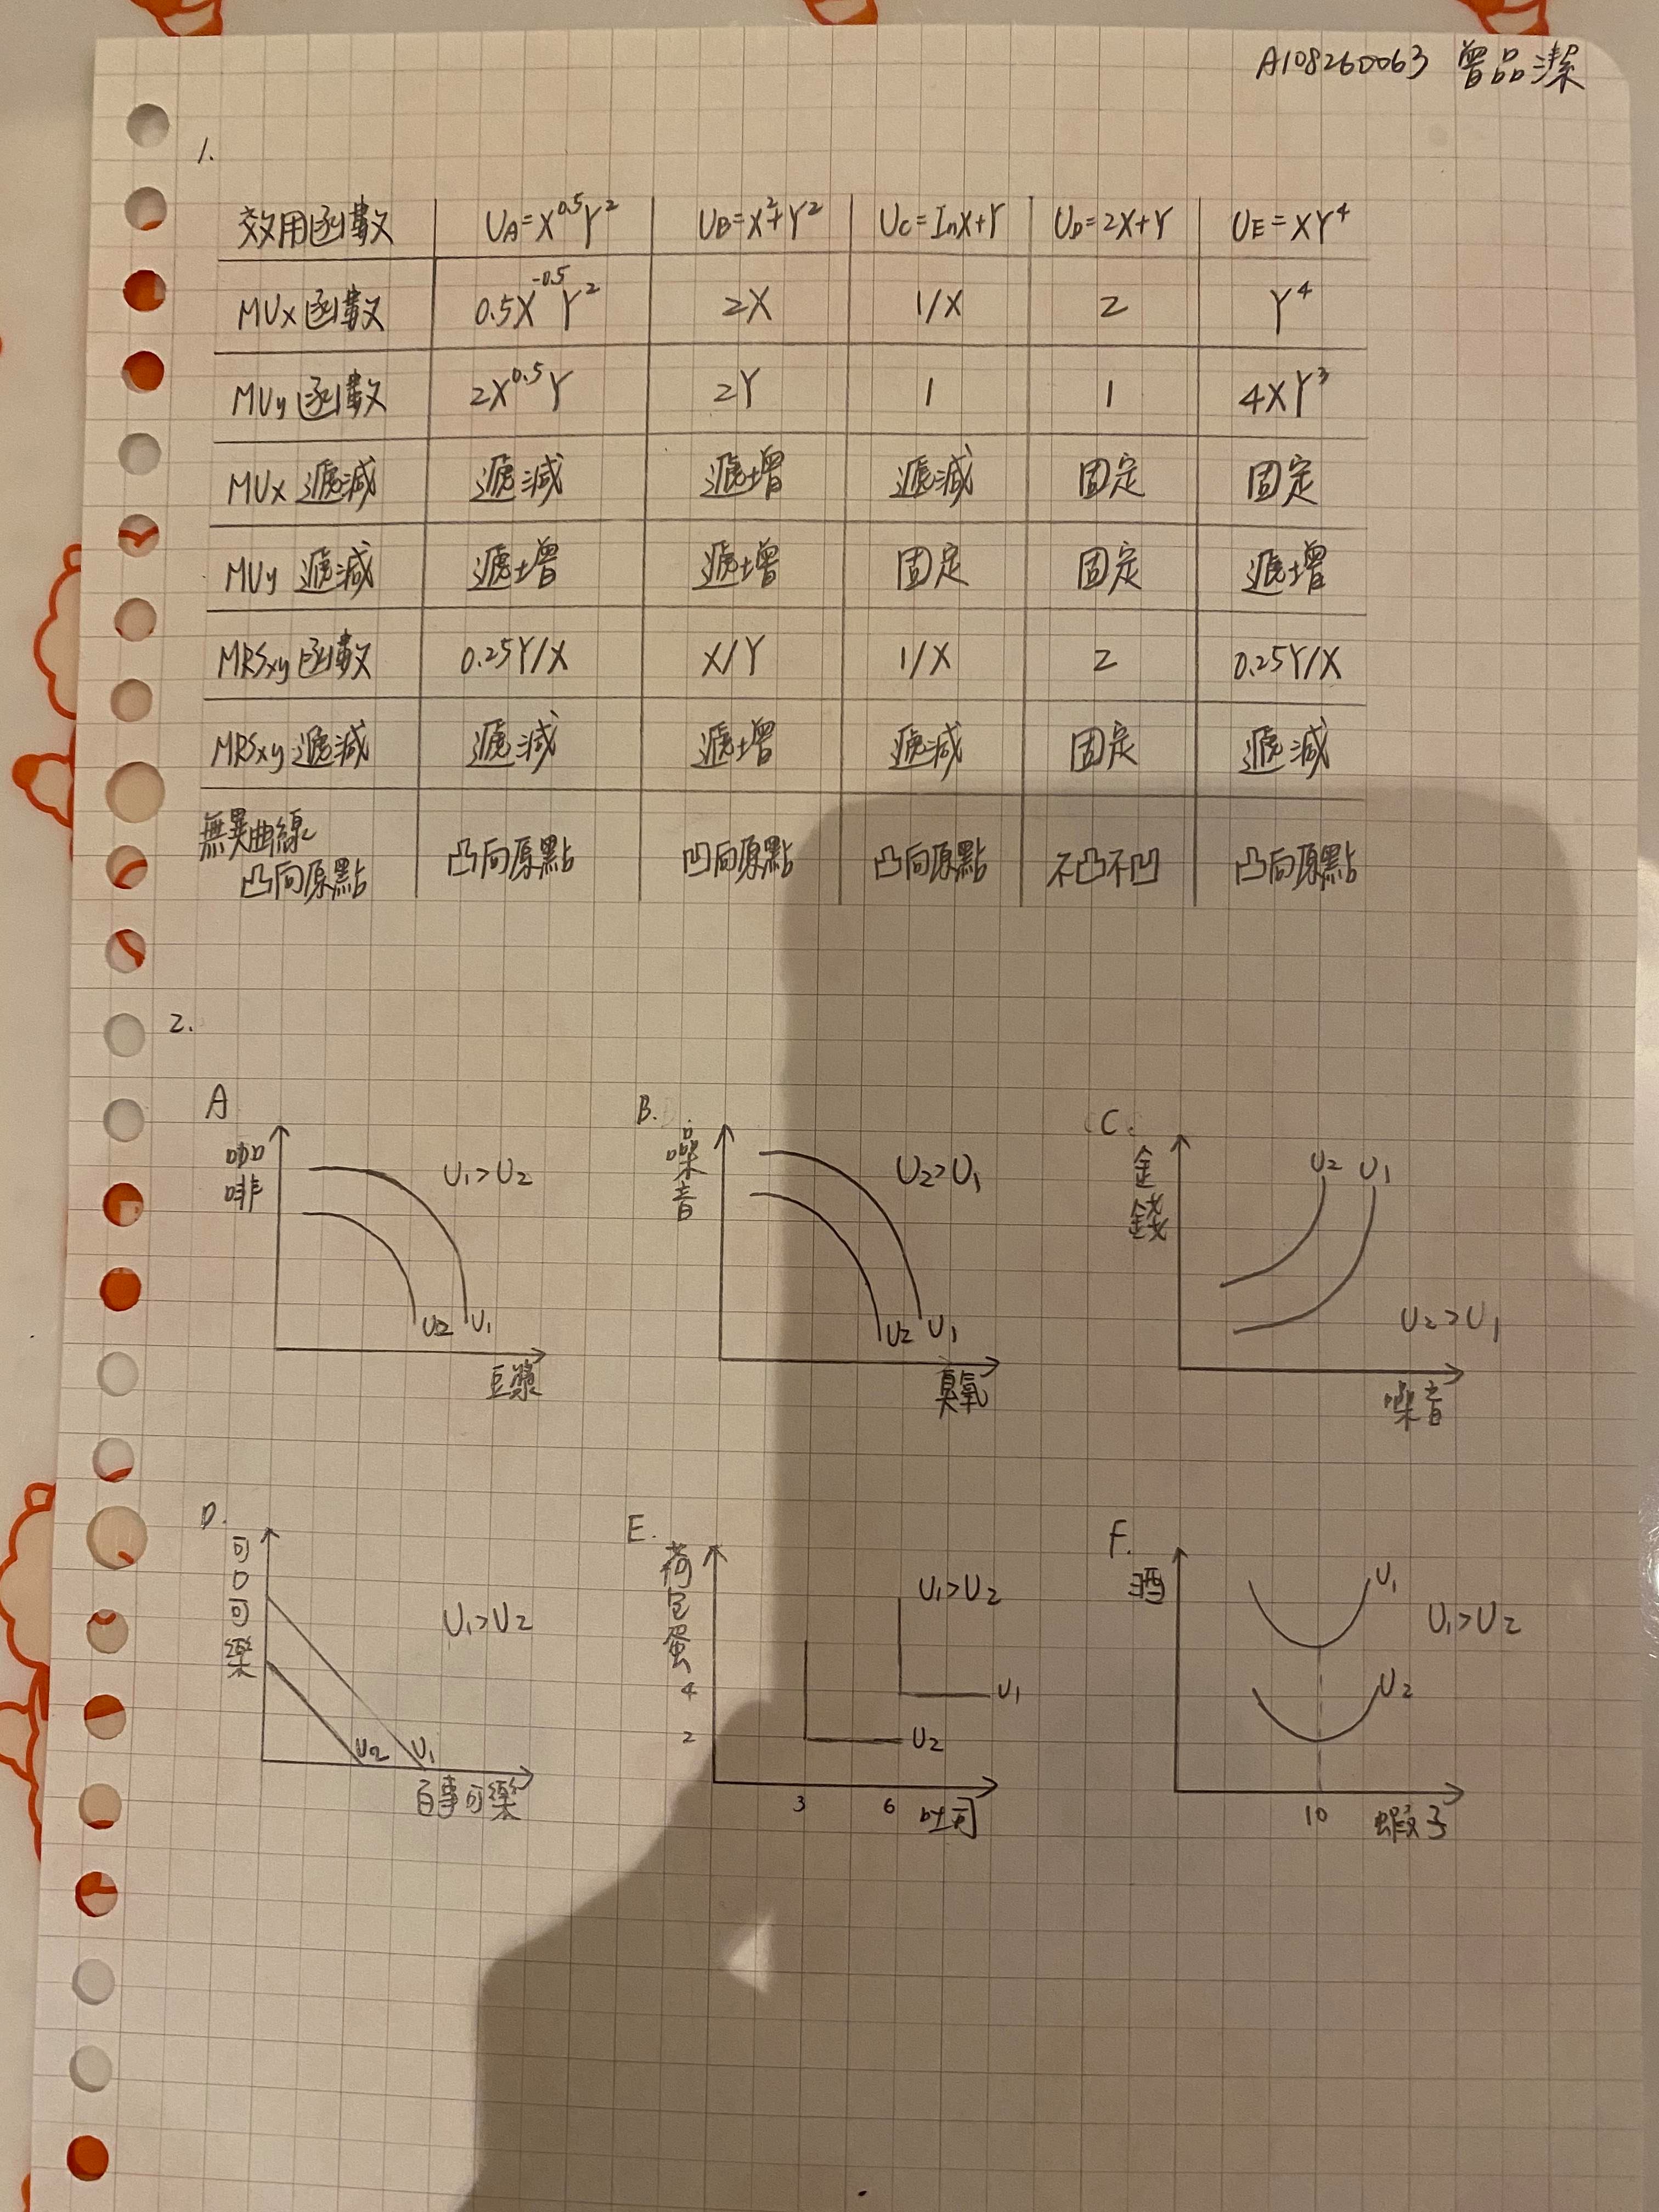 A108260063 曾品潔
1.
效用函數 UA=X^0.5Y^2 UB=X^2+Y^2 UC=InX+Y UD=2X+Y UE=XY^4
MUx函數 0.5X^-0.5Y^2 2X 1/X 2 Y^4
MUy函數 2X^0.5Y 2Y 1 1 4XY^3
MUx 遞減 遞減 遞增 遞減 固定 固定
MUy 遞減 遞增 遞增 固定 固定 遞增
MRSxy函數 0.25Y/X X/Y 1/X 2 0.25Y/X
MRSxy遞減 遞減 遞增 遞減 固定 遞減
無異曲線
凸向原點 凸向原點 凹向原點 凸向原點 不凸不凹 凸向原點
2.
A
咖啡
U1>U2
U2 U1
豆漿
B.
噪音
U2>U1
U2 U1
臭氧
C.
金錢
U2 U1
U2>U1
噪音
D.
可口可樂
U1>U2
U2 U1
百事可樂
E.
荷包蛋
U1>U2
4 U1
2 U2
3 6 吐司
F.
酒
U1
U1>U2
U2
10 蝦子